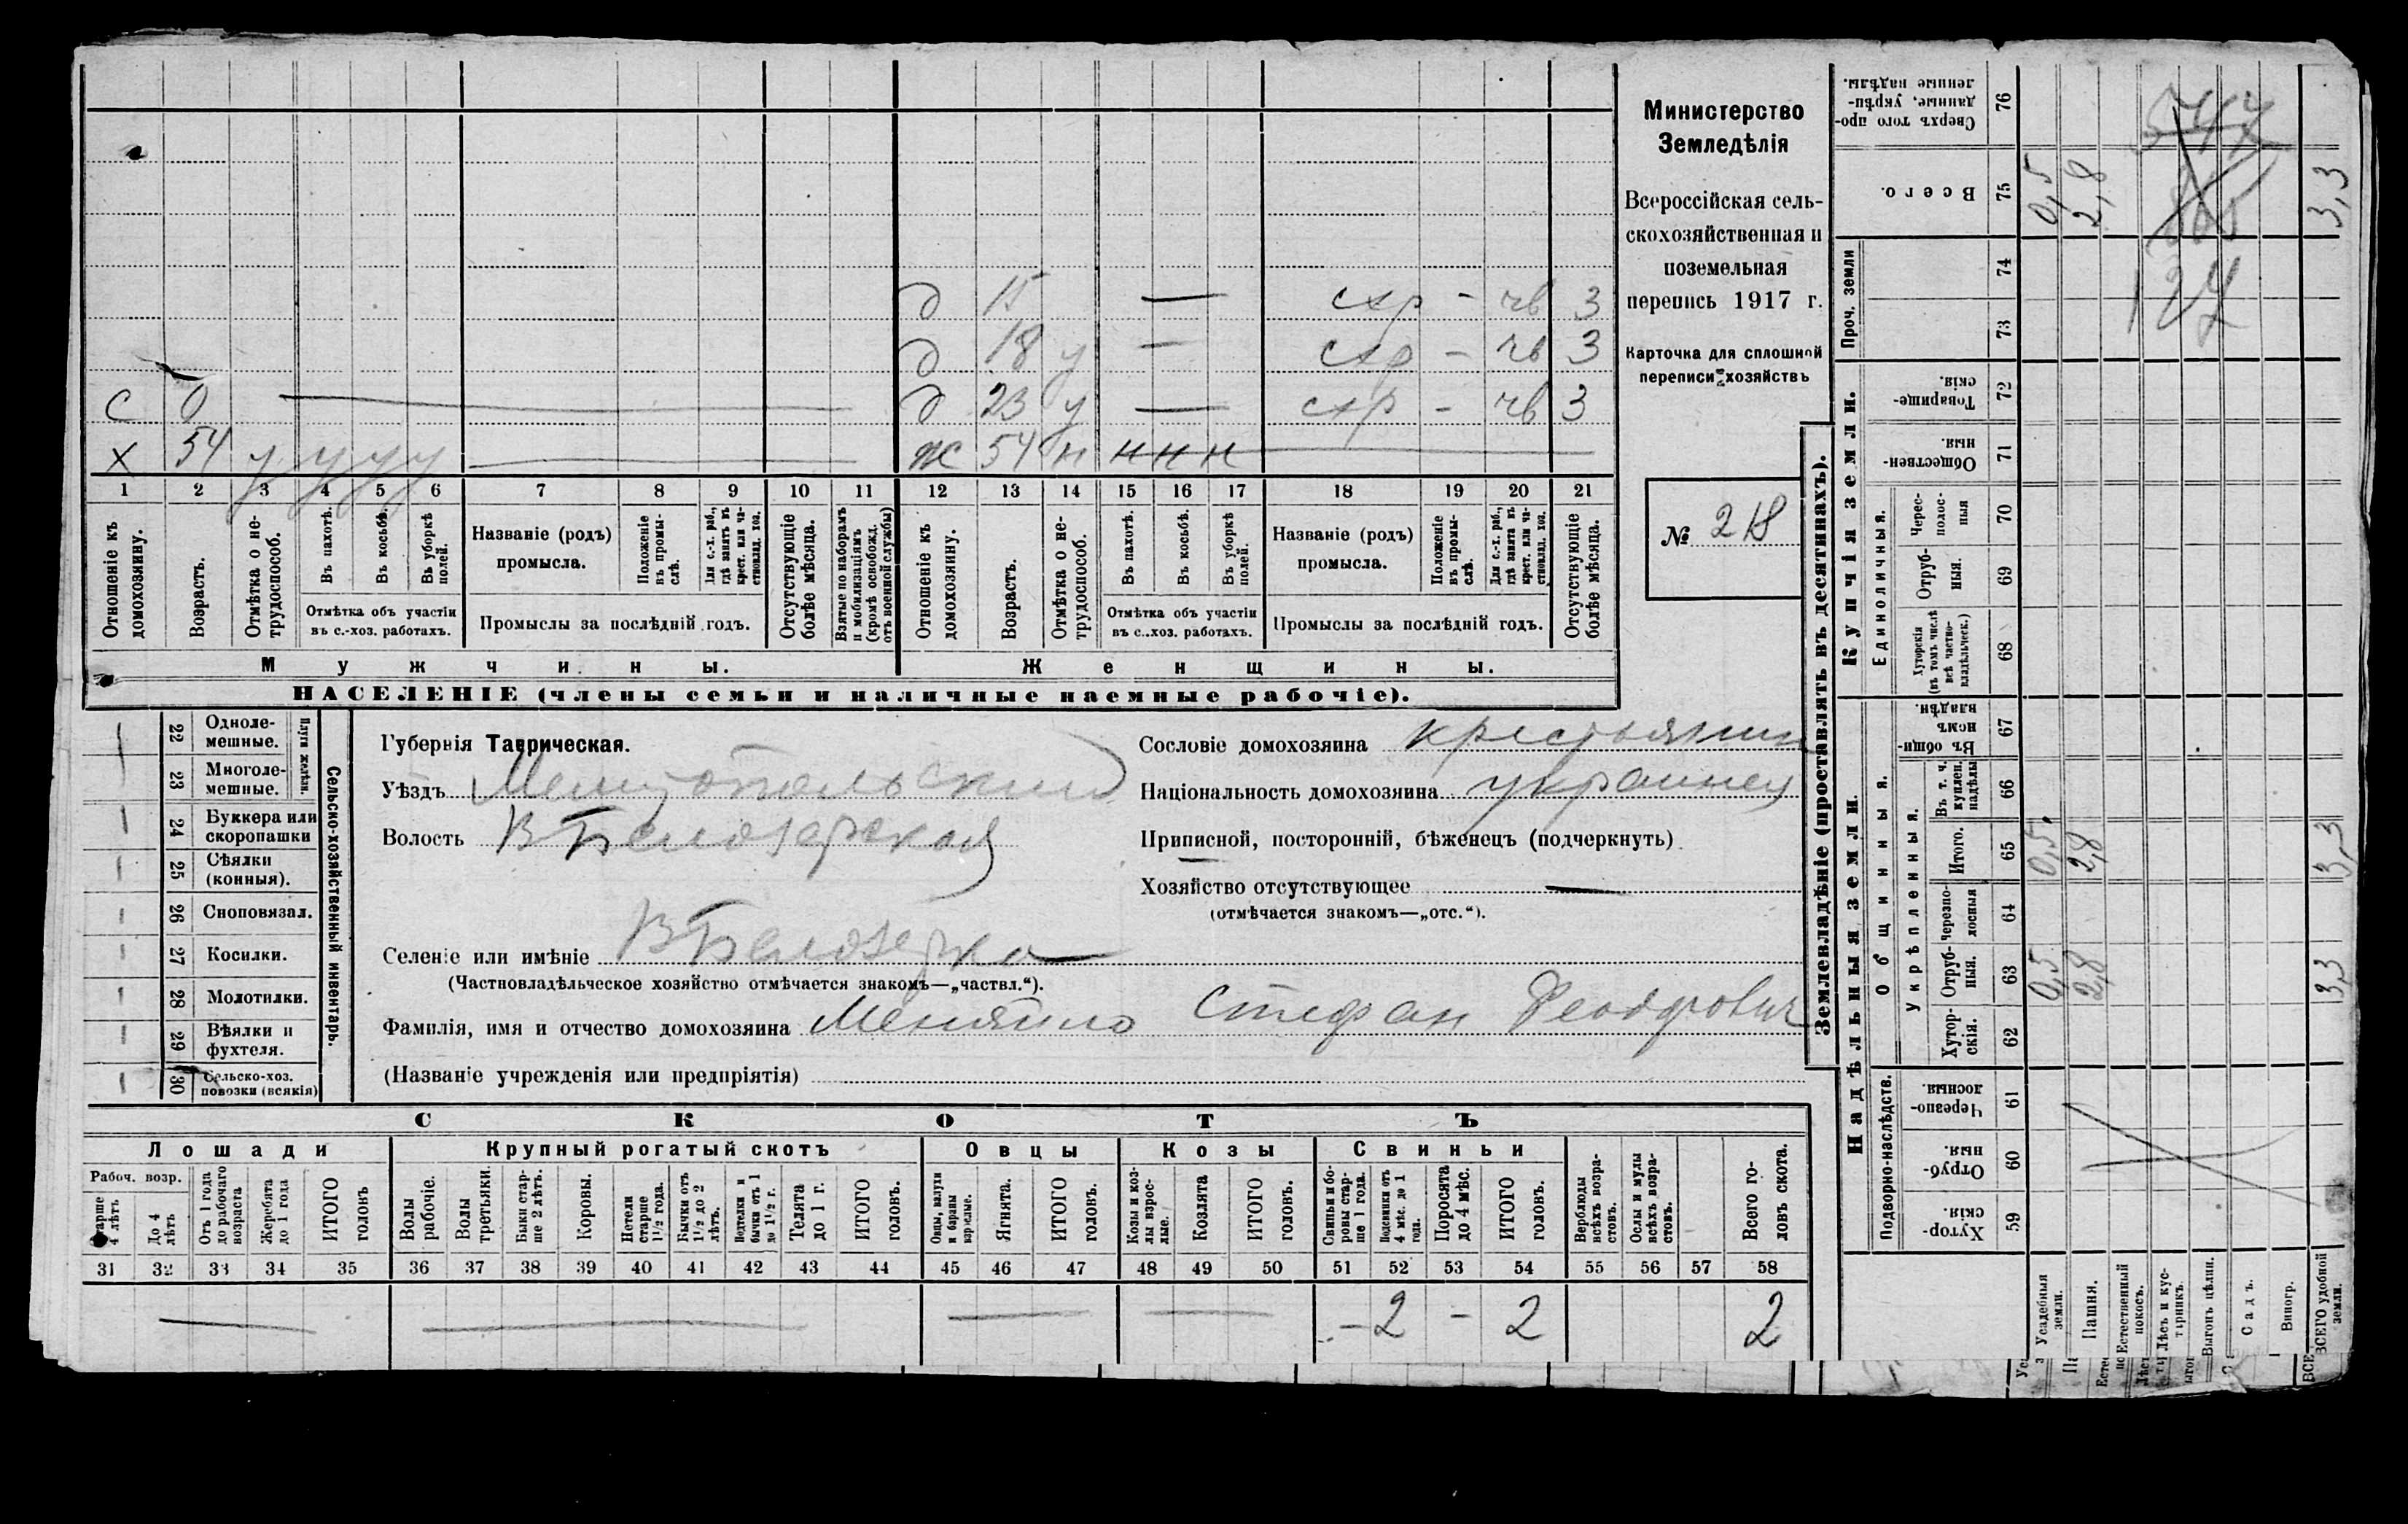 Министерство
Земледѣлія
Всероссійская сель-
скохозяйственная и
поземельная
перепись 1917 г.
Карточка для сплошной
переписи хозяйствъ
№ 218
д 15 — схр - чв 3
д 18 у — схр - чв 3
с 0 — д 23 у — схр - чв 3
х 54 у у у у — ж 54 н н н н —
1 2 3 4 5 6 7 8 9 10 11 12 13 14 15 16 17 18 19 20 21
Отношеніе къ домохозяину.
Возрастъ.
Отмѣтка о не-трудоспособ.
Въ пахотѣ.
Въ косьбѣ.
Въ уборкѣ полей.
Отмѣтка объ участіи
въ с.-хоз. работахъ.
Названіе (родъ)
промысла.
Положеніе въ промы-слѣ.
Для с.-х. раб., гдѣ занятъ въ крест. или ча-стновлад. хоз.
Промыслы за послѣдній годъ.
Отсутствующіе болѣе мѣсяца.
Взятые по наборамъ и мобилизаціямъ (кромѣ освобожд. отъ военной службы)
Отношеніе къ домохозяину.
Возрастъ.
Отмѣтка о не-трудоспособ.
Въ пахотѣ.
Въ косьбѣ.
Въ уборкѣ полей.
Отмѣтка объ участіи
въ с.-хоз. работахъ.
Названіе (родъ)
промысла.
Положеніе въ промы-слѣ.
Для с.-х. раб., гдѣ занята въ крест. или ча-стновлад. хоз.
Промыслы за послѣдній годъ.
Отсутствующіе болѣе мѣсяца.
Мужчины. Женщины.
НАСЕЛЕНІЕ (члены семьи и наличные наемные рабочіе).
22 Одноле-мешные.
23 Многоле-мешные.
Плуги желѣзн.
24 Буккера или скоропашки
25 Сѣялки (конныя).
26 Сноповязал.
27 Косилки.
28 Молотилки.
29 Вѣялки и фухтеля.
30 Сельско-хоз. повозки (всякія)
Сельско-хозяйственный инвентарь.
Губернія Таврическая.
Уѣздъ Мелитопольский
Волость В Белозерская
Селеніе или имѣніе В Белозерка
(Частновладѣльческое хозяйство отмѣчается знакомъ—„частвл.“).
Фамилія, имя и отчество домохозяина Меняйло Стефан Феодрович
(Названіе учрежденія или предпріятія)
Сословіе домохозяина крестьянин
Національность домохозяина украинец
Приписной, посторонній, бѣженецъ (подчеркнуть)
Хозяйство отсутствующее —
(отмѣчается знакомъ—„отс.“).
СКОТЪ
Лошади Крупный рогатый скотъ Овцы Козы Свиньи
Рабоч. возр.
Старше 4 лѣтъ
До 4 лѣтъ
Отъ 1 года до рабочаго возраста
Жеребята до 1 года
ИТОГО головъ
Волы рабочіе.
Волы третьяки.
Быки стар-ше 2 лѣтъ.
Коровы.
Нетели старше 1 1/2 года.
Бычки отъ 1 1/2 до 2 лѣтъ.
Нетелки и бычки отъ 1 до 1 1/2 г.
Телята до 1 г.
ИТОГО головъ.
Овцы, валухи и бараны взрослые.
Ягнята.
ИТОГО головъ.
Козы и коз-лы взрос-лые.
Козлята
ИТОГО головъ.
Свиньи и бо-ровы стар-ше 1 года.
Подсвинки отъ 4 мѣс. до 1 года.
Поросята до 4 мѣс.
ИТОГО головъ.
Верблюды всѣхъ возра-стовъ.
Ослы и мулы всѣхъ возра-стовъ.
Всего го-ловъ скота.
31 32 33 34 35 36 37 38 39 40 41 42 43 44 45 46 47 48 49 50 51 52 53 54 55 56 57 58
— — — — - 2 - 2 2
Землевладѣніе (проставлять въ десятинахъ).
Надѣльныя земли. Купчія земли. Проч. земли
Подворно-наслѣдств.
Общинныя.
Укрѣпленныя.
Единоличныя.
59 Хутор-скія.
60 Отруб-ныя.
61 Черезпо-лосныя.
62 Хутор-скія.
63 Отруб-ныя.
64 Черезпо-лосныя
65 Итого.
66 Въ т. ч. куплен. надѣлы
67 Въ общи-номъ владѣн.
68 Хуторскія (въ томъ числѣ всѣ частно-владѣльческ.)
69 Отруб-ныя.
70 Черес-полос-ныя
71 Обществен-ныя.
72 Товарище-скія.
73
74
75 Всего.
76 Сверхъ того про-данные, укрѣп-ленные надѣлы.
Усадебныя земли. 0,5 0,5 0,5
Пашня. 2,8 2,8 2,8
Естественный покосъ.
Лѣсъ и кус-тарникъ.
Выгонъ цѣлин.
Садъ.
Виногр.
ВСЕГО удобной земли. 3,3 3,3 3,3
127